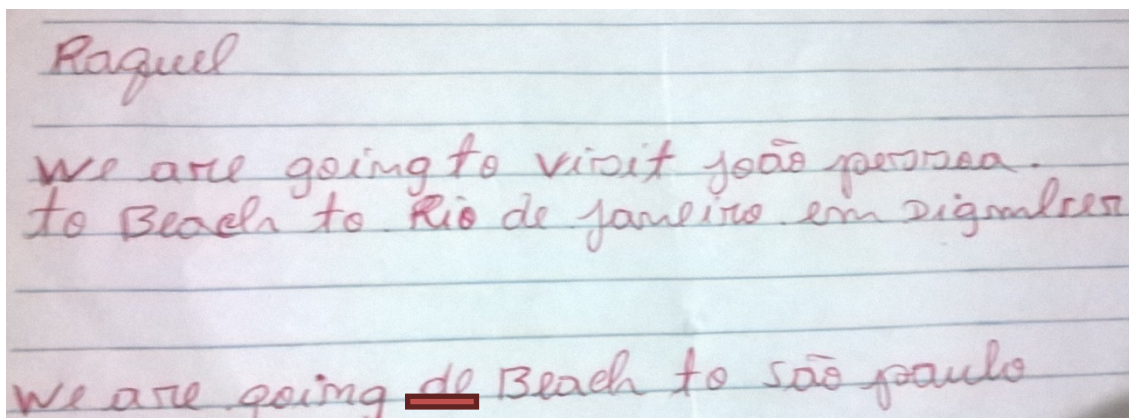 Raquel
We are going to visit joão pessoa.
to Beach to Rio de janeiro em
We are going de Beach to são paulo